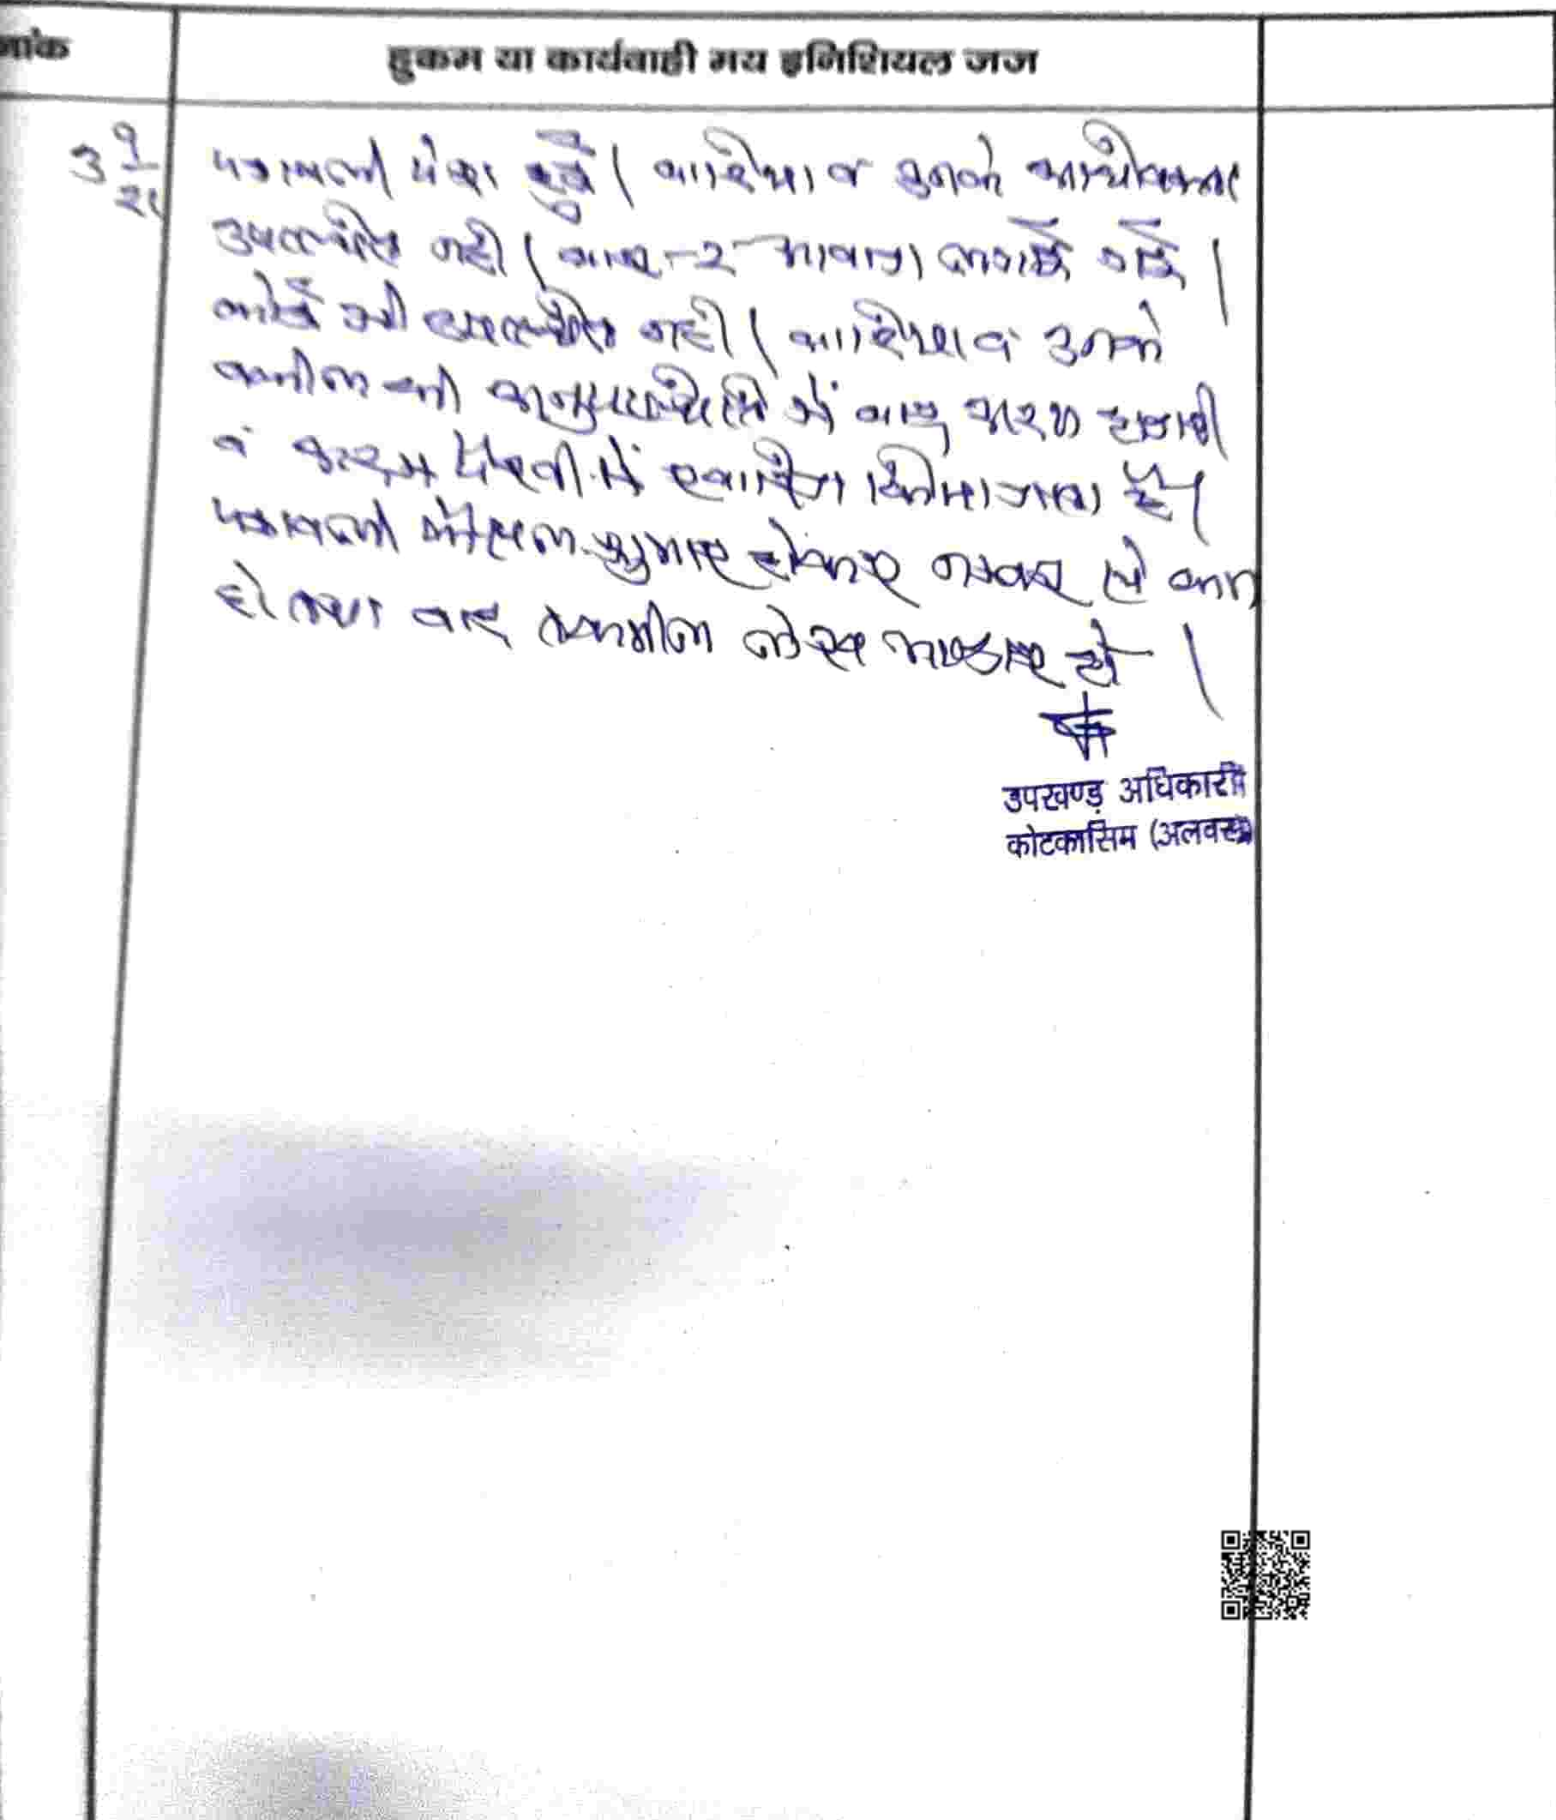 नांक
हुकम या कार्यवाही मय इनिशियल जज
3 9/21
पत्रावली पेश हुई। वादिया व उनके अधिवक्ता
उपस्थित नहीं। बार-2 आवाज लगाई गई।
कोई भी उपस्थित नहीं। वादिया व उनके
वकील की अनुपस्थिति में वाद अदम हाजरी
व अदम पैरवी में खारिज किया जाता है।
पत्रावली फैसल शुमार होकर नम्बर से कम
हो तथा बाद तकमील लेख भण्डार हो।
उपखण्ड़ अधिकारी
कोटकासिम (अलवर)